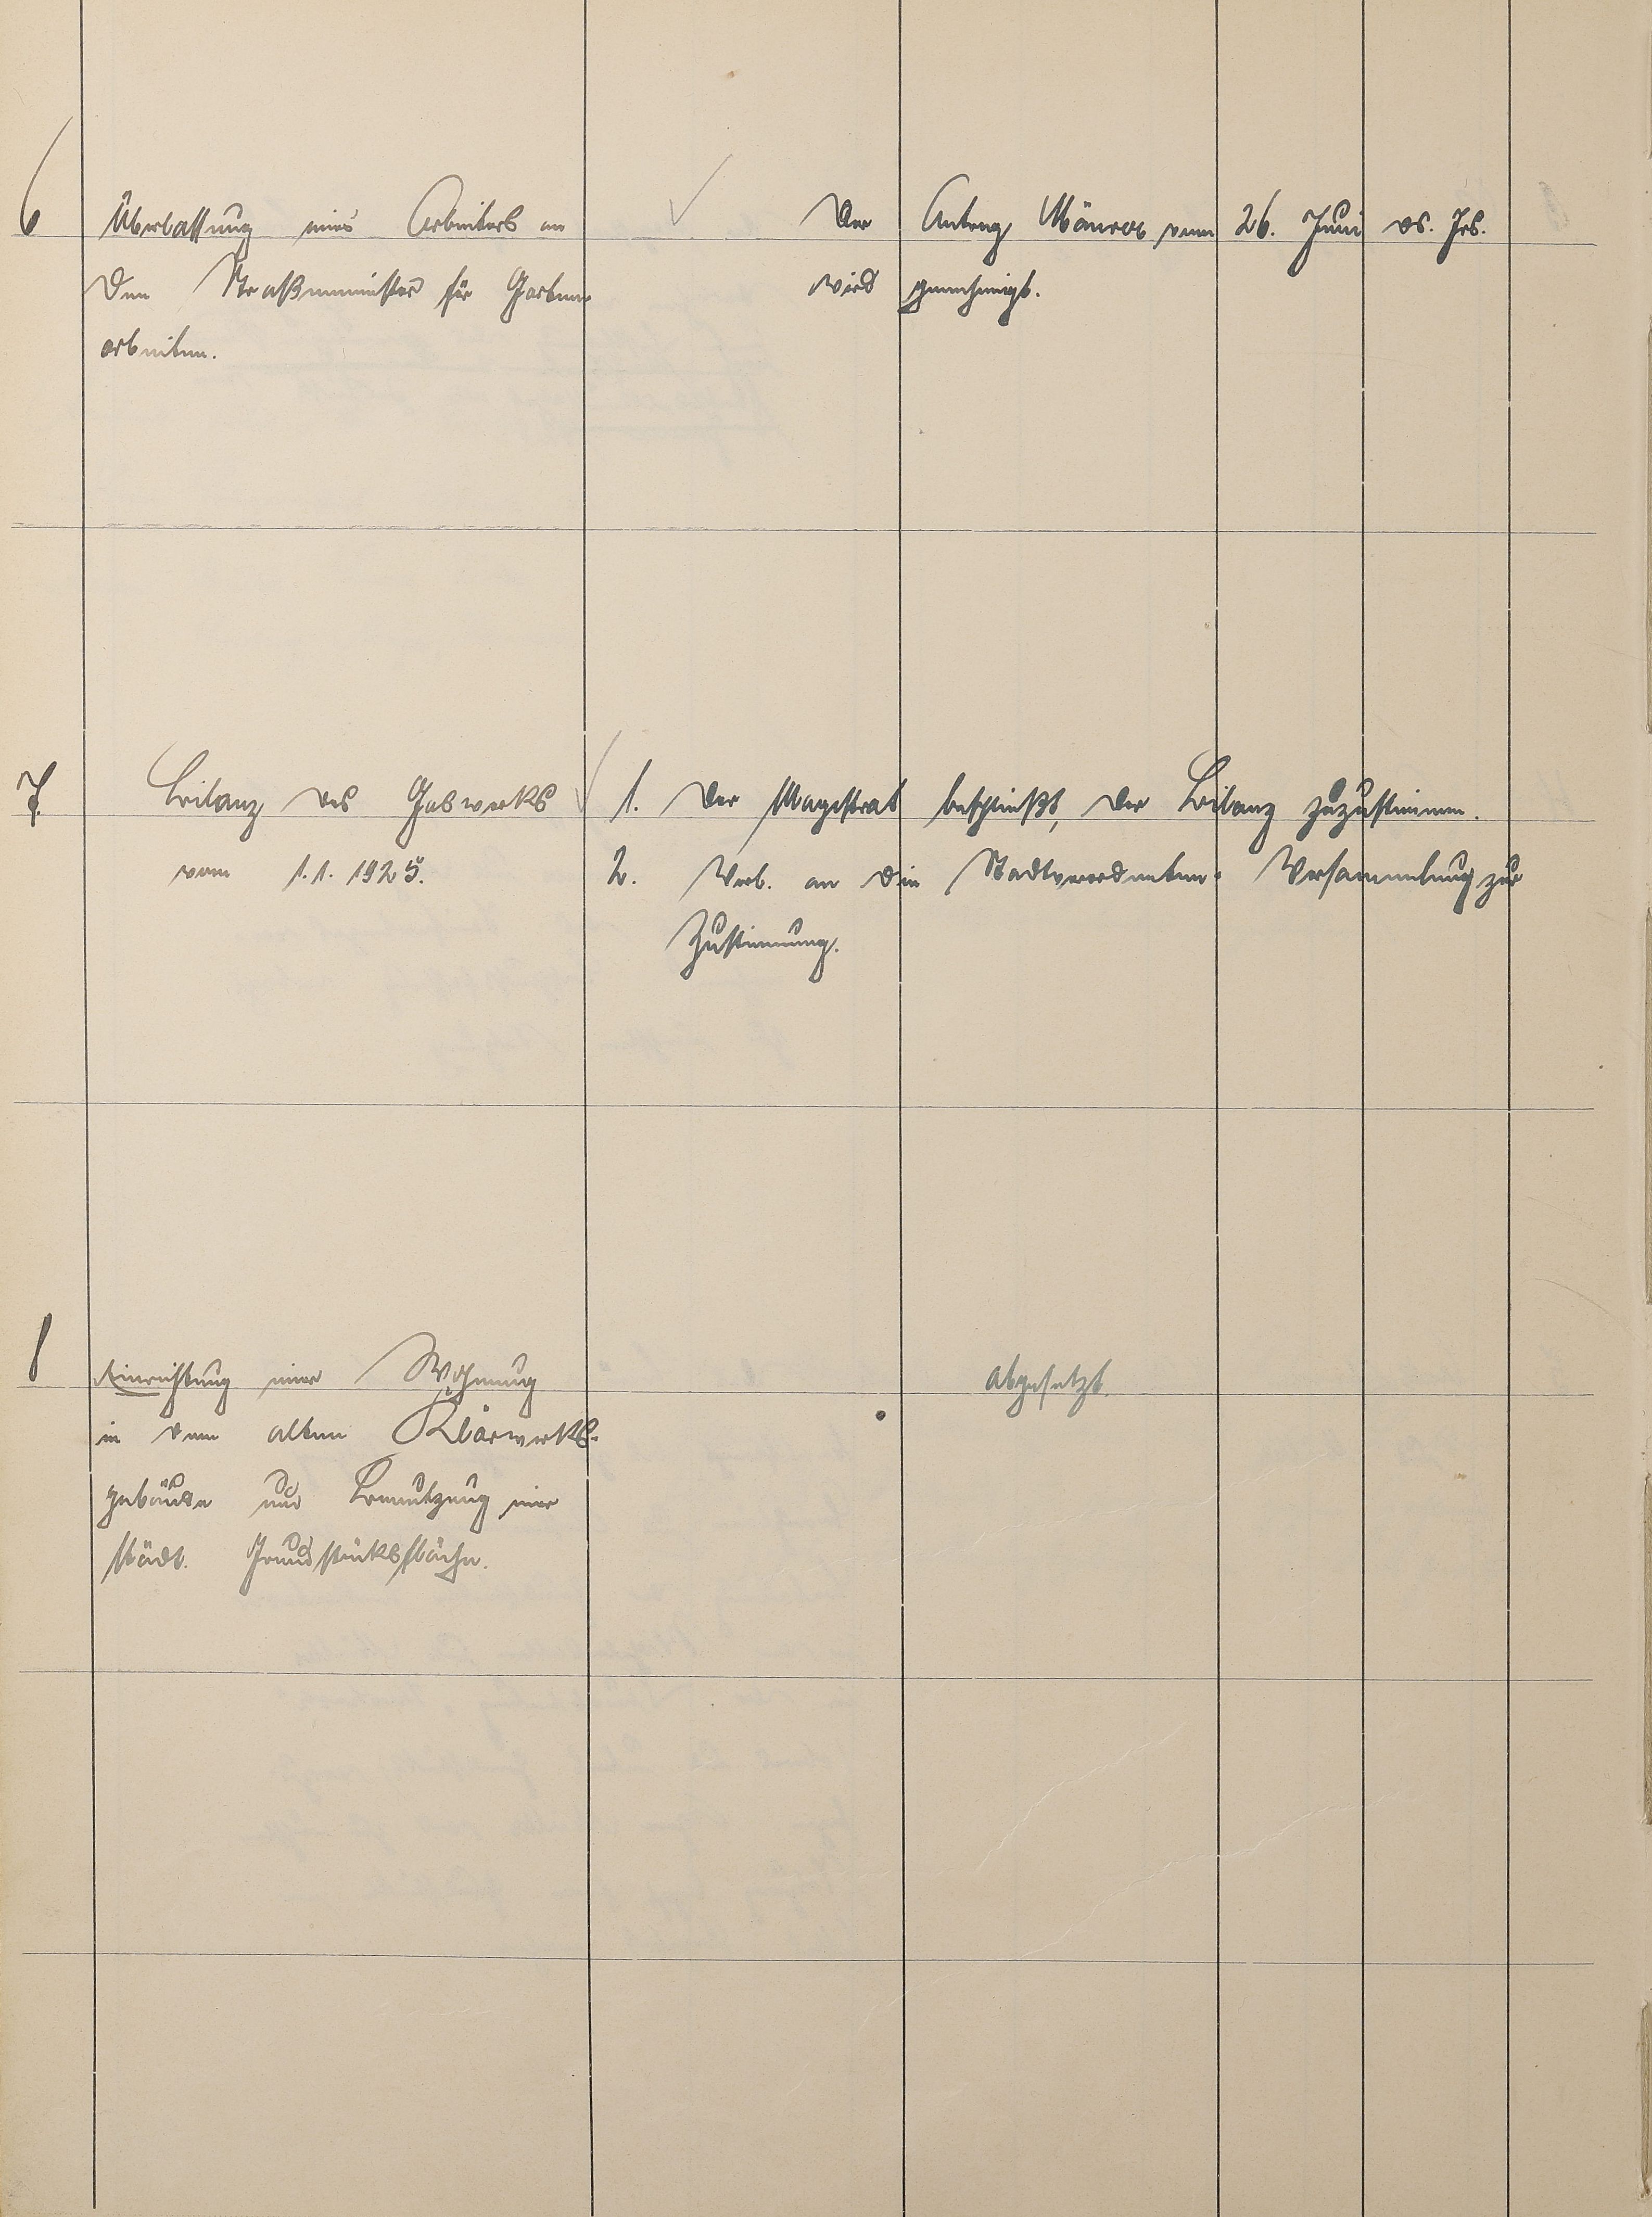 6 Überlassung eines Arbeiters an
den Straßenmeister für Garten-
arbeiten.
Der Antrag vom 26. Juni ds. Js.
wird genehmigt.
7. Bilanz des Gaswerks
vom 1.1.1925.
1. Der Magistrat beschließt, der Bilanz zuzustimmen.
2. Vorl. an die Stadtverordneten-Versammlung zur
Zustimmung.
8 Einrichtung einer Wohnung
in dem alten Klärwerks-
gebäude und Benutzung einer
städt. Grundstücksfläche.
abgesetzt.